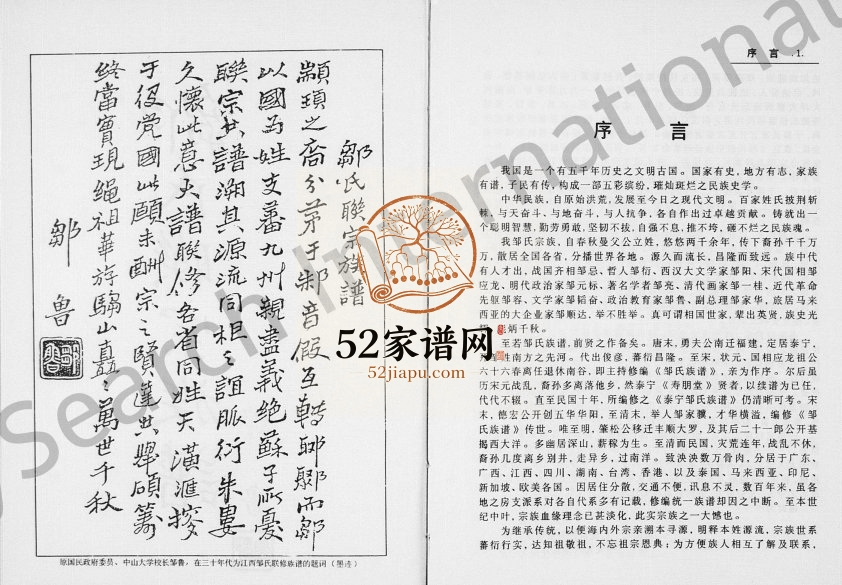 鄒氏聯宗族譜
顓頊之裔分茅于邾音假互轉郰鄹而鄒
以國為姓支蕃九州親盡義絕蘇子所憂
聯宗共譜溯其源流同誼脈衍朱婁
久懷此意大譜聯修各省同姓天潢滙
于役党國此願未酬宗之賢達共舉碩籌
終當實現繩祖華族騶山矗〻萬世千秋
鄒魯
原国民政府委员、中山大学校长邹鲁，在三十年代为江西邹氏联修族谱的题词（墨迹）
序 言 .1.
序 言
我国是一个有五千年历史之文明古国。国家有史，地方有志，家族
有谱，子民有传，构成一部五彩缤纷，璀灿斑烂之民族史学。
中华民族，自原始洪荒，发展至今日之现代文明。百家姓氏披荆斩
棘，与天奋斗、与地奋斗，与人抗争，各自作出过卓越贡献。铸就出一
个聪明智慧，勤劳勇敢，坚韧不拔，自强不息，推不垮，砸不烂之民族魂。
我邹氏宗族，自春秋曼父公立姓，悠悠两千余年，传下裔孙千千万
万，散居全国各省，分播世界各地。源久而流长，昌隆而致远。族中代
有人才出，战国齐相邹忌、哲人邹衍、西汉大文学家邹阳、宋代国相邹
应龙、明代政治家邹元标、著名学者邹亮、清代画家邹一桂、近代革命
先躯邹容、文学家邹韬奋、政治教育家邹鲁、副总理邹家华，旅居马来
西亚的大企业家邹顺达，举不胜举。真可谓相国世家，辈出英贤，族史光
炳千秋。
至若邹氏族谱，前贤之作备矣。唐末，勇夫公南迁福建，定居泰宁，
姓南方之先河。代出俊彦，蕃衍昌隆。至宋，状元、国相应龙祖公
六十六春离任退休南谷，即主持修编《邹氏族谱》，亲为作序。尔后虽
历宋元战乱，裔孙多离荡他乡，然泰宁《寿朋堂》贤者，以续谱为已任，
代代不辍。直至民国十年，所编修之《泰宁邹氏族谱》仍清晰可考。宋
末，德宏公开创五华华阳，至清末，举人邹家骥，才华横溢，编修《邹
氏族谱》传世。唯至明，肇松公移迁丰顺大罗，及其后二十一郎公开基
揭西大洋。多幽居深山，薪稼为生。至清而民国，灾荒连年，战乱不休，
裔孙几度离乡别井，走异乡，过南洋。致泱泱数万骨肉，分居于广东、
广西、江西、四川、湖南、台湾、香港、以及泰国、马来西亚、印尼、
新加坡、欧美各国。因居住分散，交通不便，讯息不灵，数百年来，虽各
地之房支派系对各自代系多有记载，修编统一族谱却因之中断。至本世
纪中叶，宗族血缘理念已甚淡化，此实宗族之一大憾也。
为继承传统，以便海内外宗亲溯本寻源，明释本姓源流，宗族世系
蕃衍行实，达知祖敬祖，不忘祖宗恩典；为方便族人相互了解及联系，
52家谱网
52jiapu.com
Search International